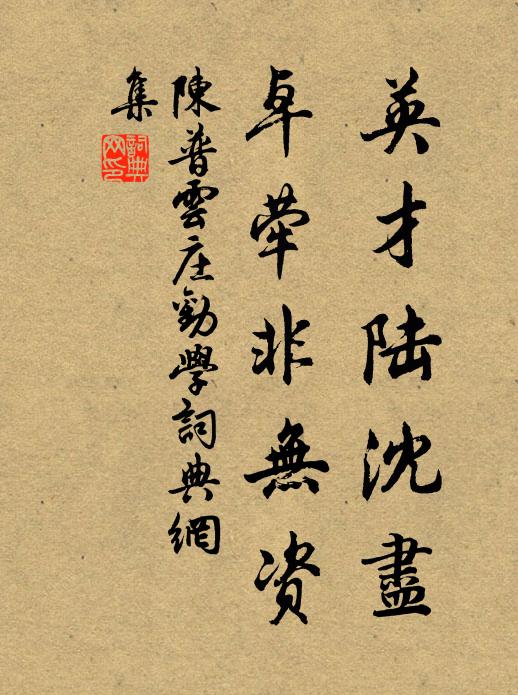 英才陆沈盡
卓犖非無资
陳普雲庄勸學詞典網
集
詞典網印